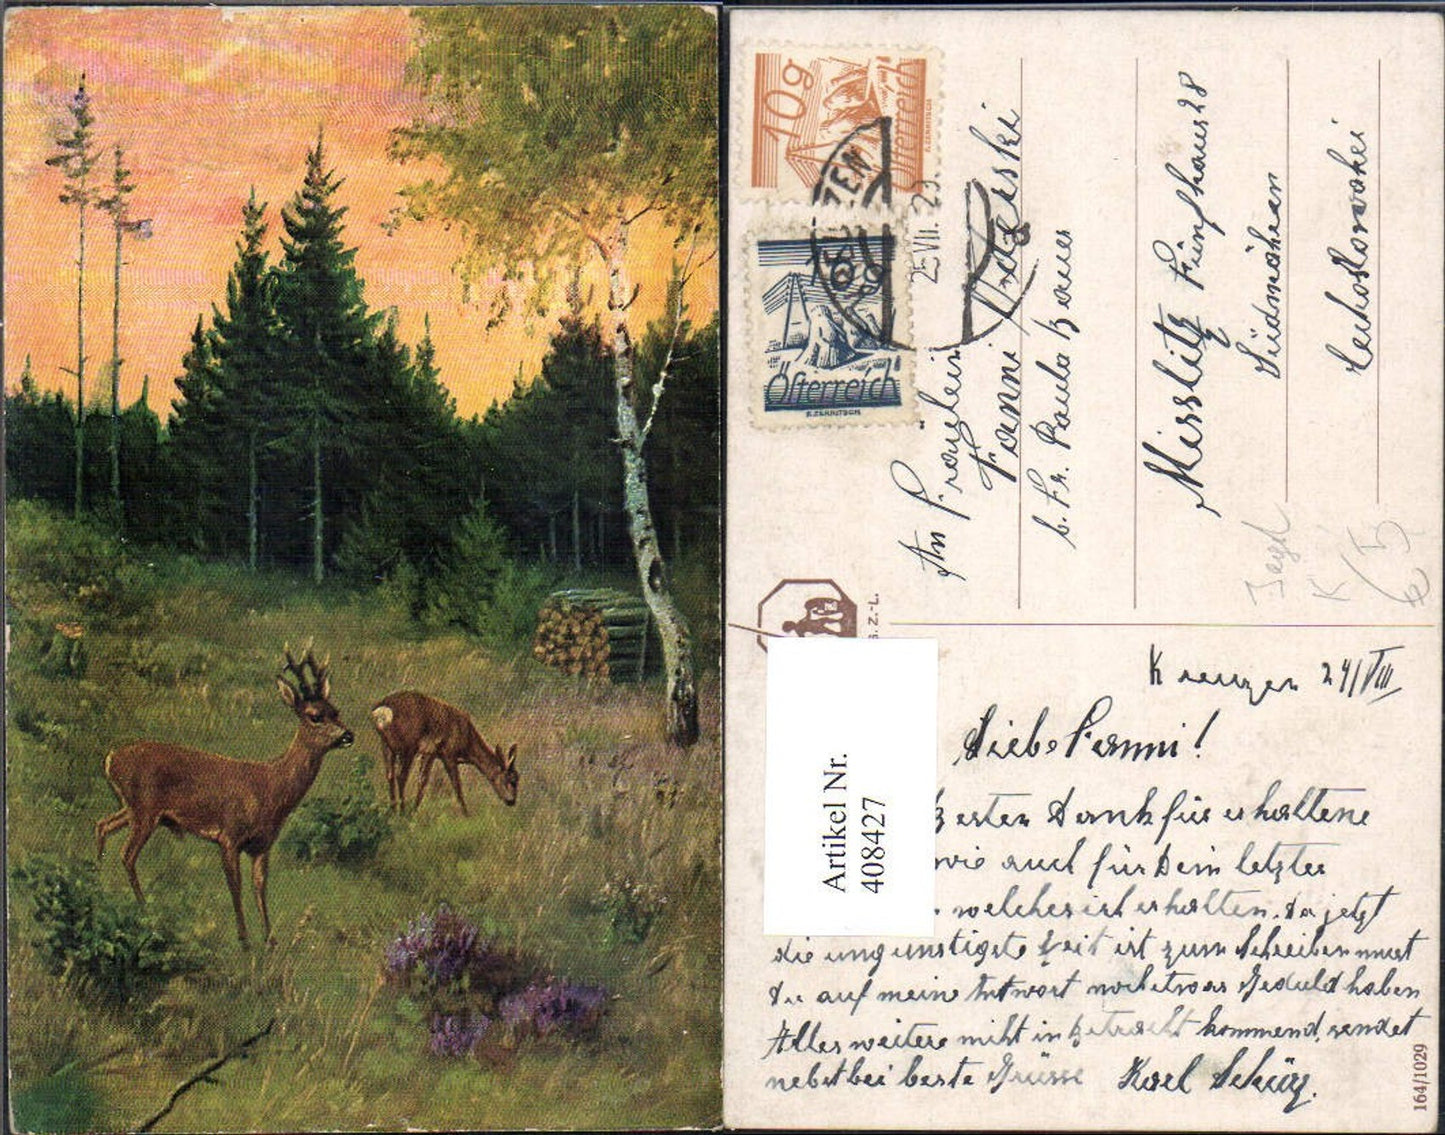 10g
Österreich
R.ZERRITSCH
16g
Österreich
R.ZERRITSCH
ZEN
25.VII.
An Fräulein
Fanni
b. Fr. Paula Bauer
Misslitz Fünfhaus 28
Südmähren
Jagd
K
Artikel Nr.
408427
24/VIII
Liebe Fanni!
Besten Dank für erhaltene
wie auch für Dein letztes
welches ich erhalten. Da jetzt
die ungünstigste Zeit ist zum Schreiben must
Du auf meine Antwort noch etwas Geduld haben
Alles weitere nicht in Betracht kommend, sendet
nebstbei beste Grüsse Karl
164/1029